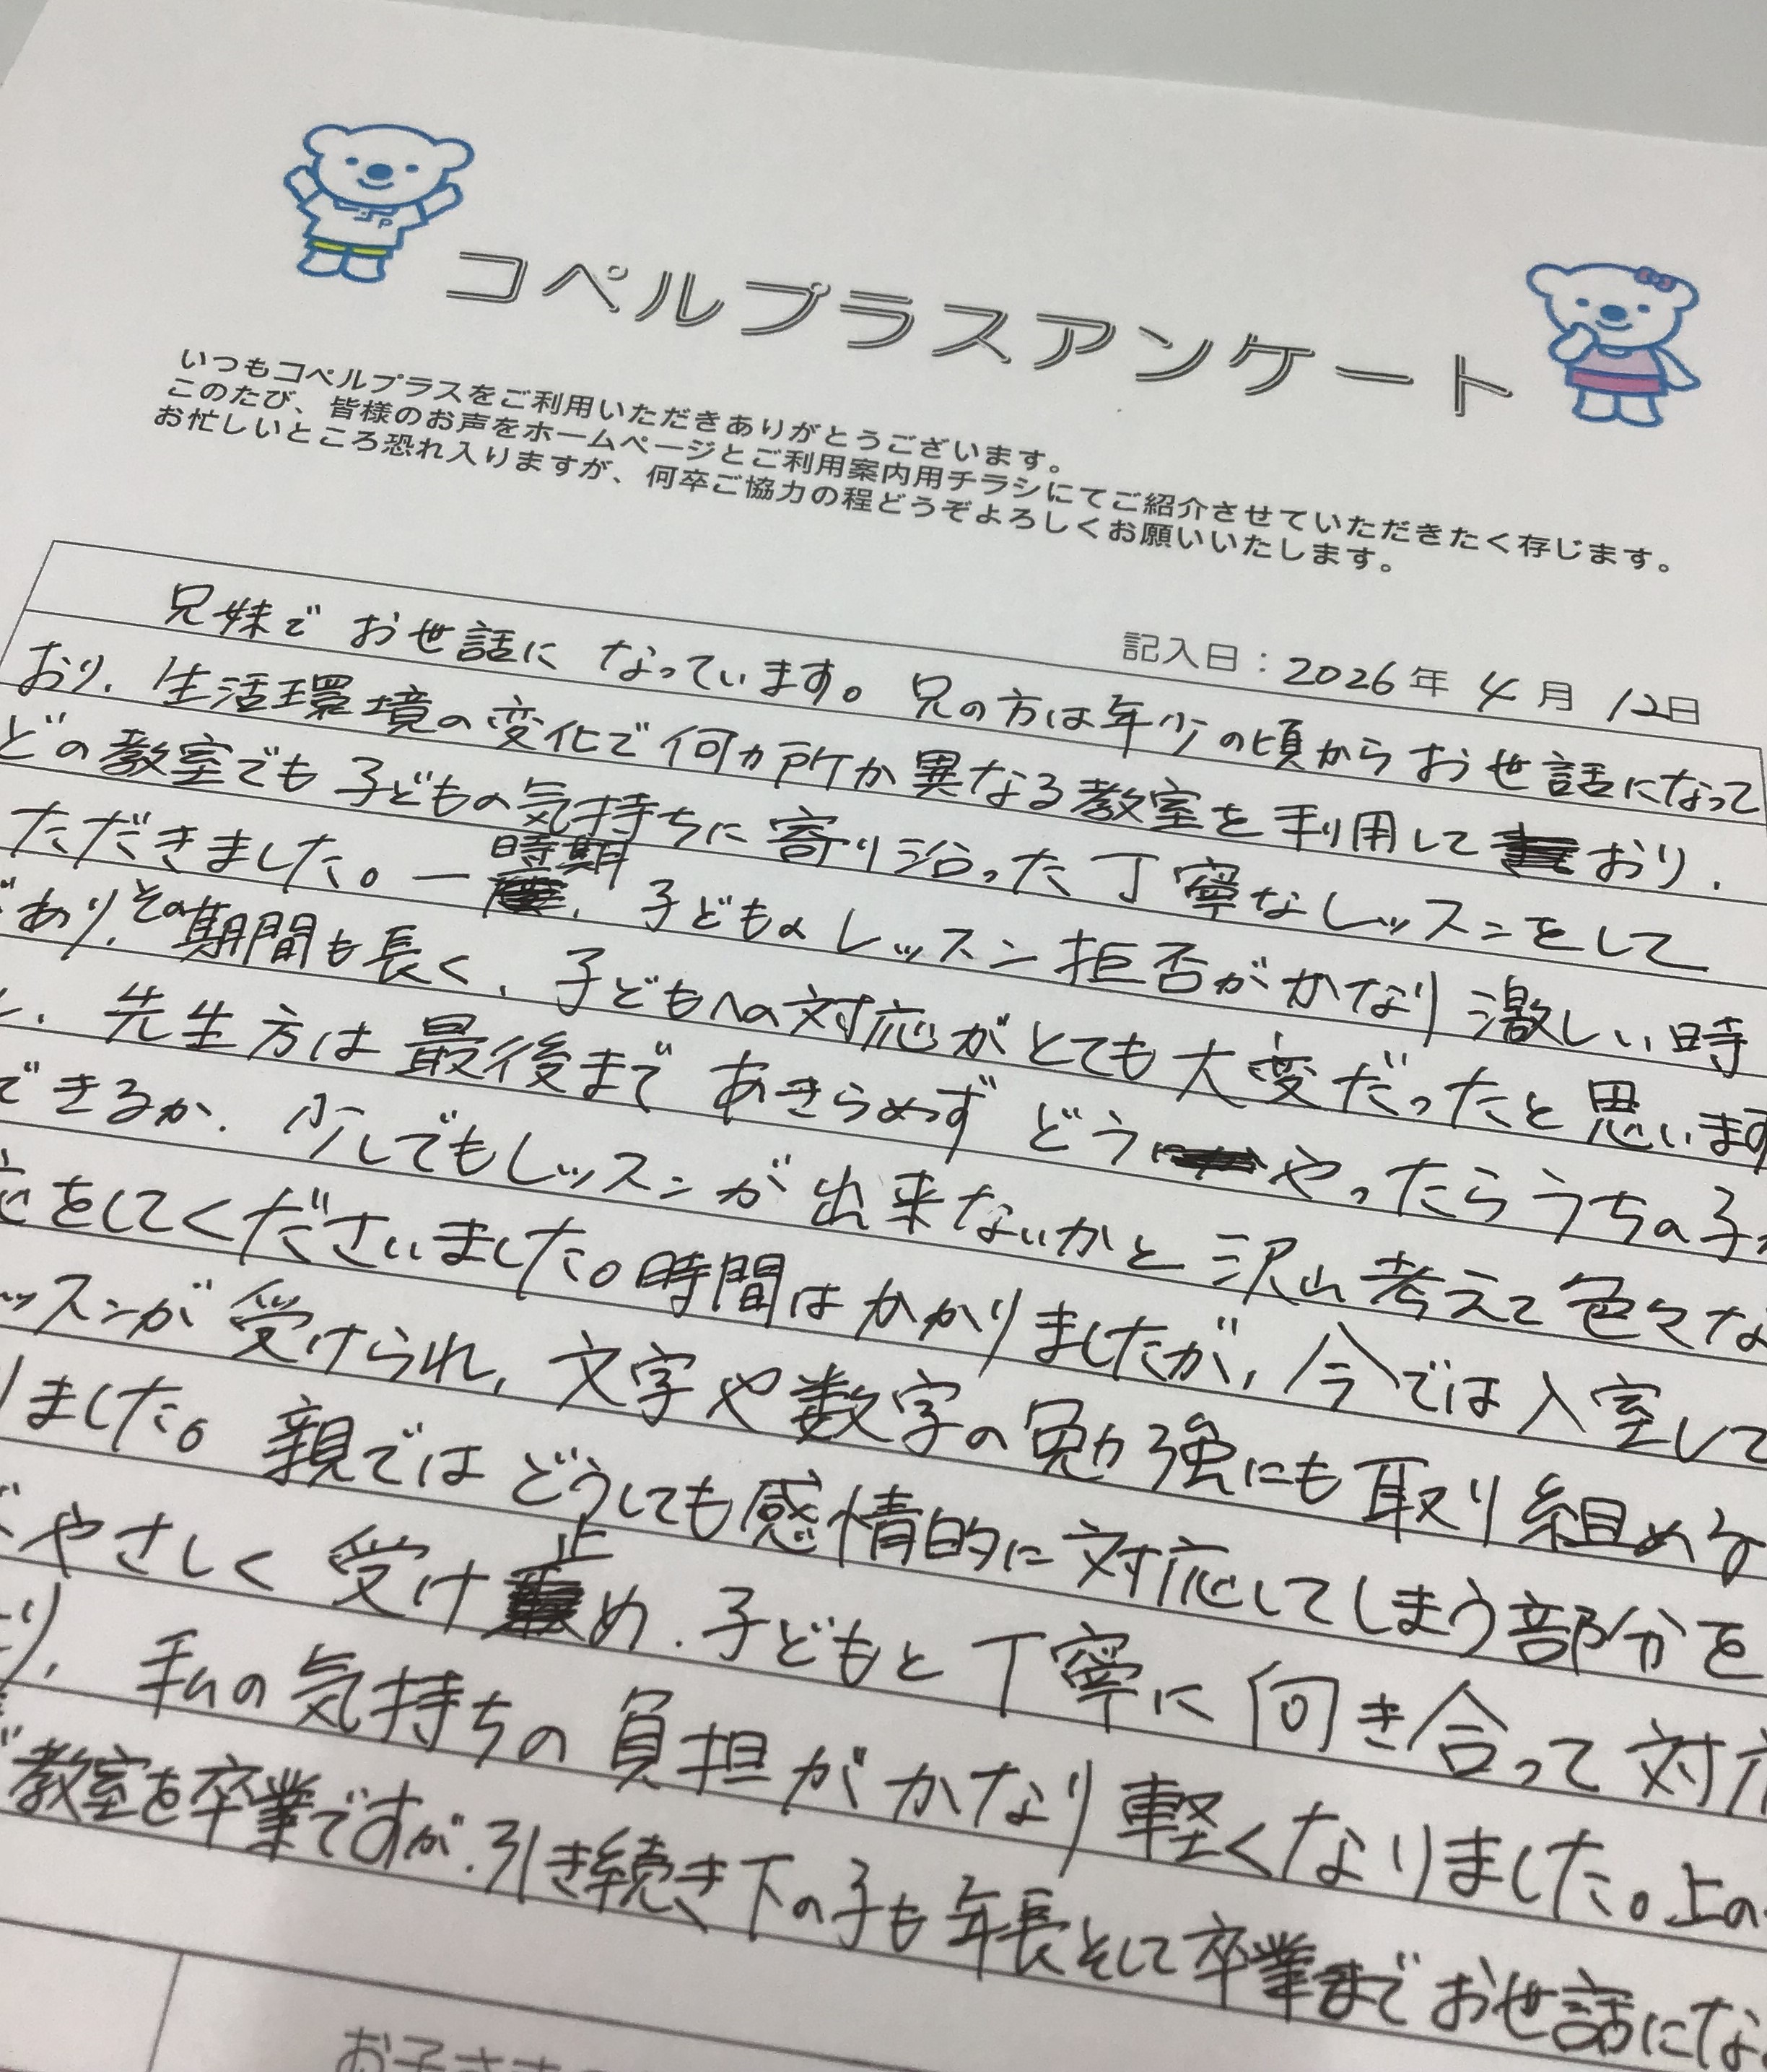 コペルプラスアンケート
いつもコペルプラスをご利用いただきありがとうございます。
このたび、皆様のお声をホームページとご利用案内用チラシにてご紹介させていただきたく存じます。
お忙しいところ恐れ入りますが、何卒ご協力の程どうぞよろしくお願いいたします。
記入日：2026年 4月 12日
兄妹で お世話に なっています。兄の方は年少の頃からお世話になって
おり、生活環境の変化で何カ所か異なる教室を利用して おり、
どの教室でも子どもの気持ちに寄り沿った丁寧なレッスンをして
ただきました。一時期、子どものレッスン拒否がかなり激しい時
があり、その期間も長く、子どもへの対応がとても大変だったと思います
、先生方は最後まであきらめず どうやったらうちの子
できるか、少しでもレッスンが出来ないかと沢山考えて色々な
をしてくださいました。時間はかかりましたが、今では入室して
ッスンが受けられ、文字や数字の勉強にも取り組める
りました。親ではどうしても感情的に対応してしまう部分を
やさしく受け止め、子どもと丁寧に向き合って対応
り、私の気持ちの負担がかなり軽くなりました。上の
教室を卒業ですが、引き続き下の子も年長そして卒業までお世話にな